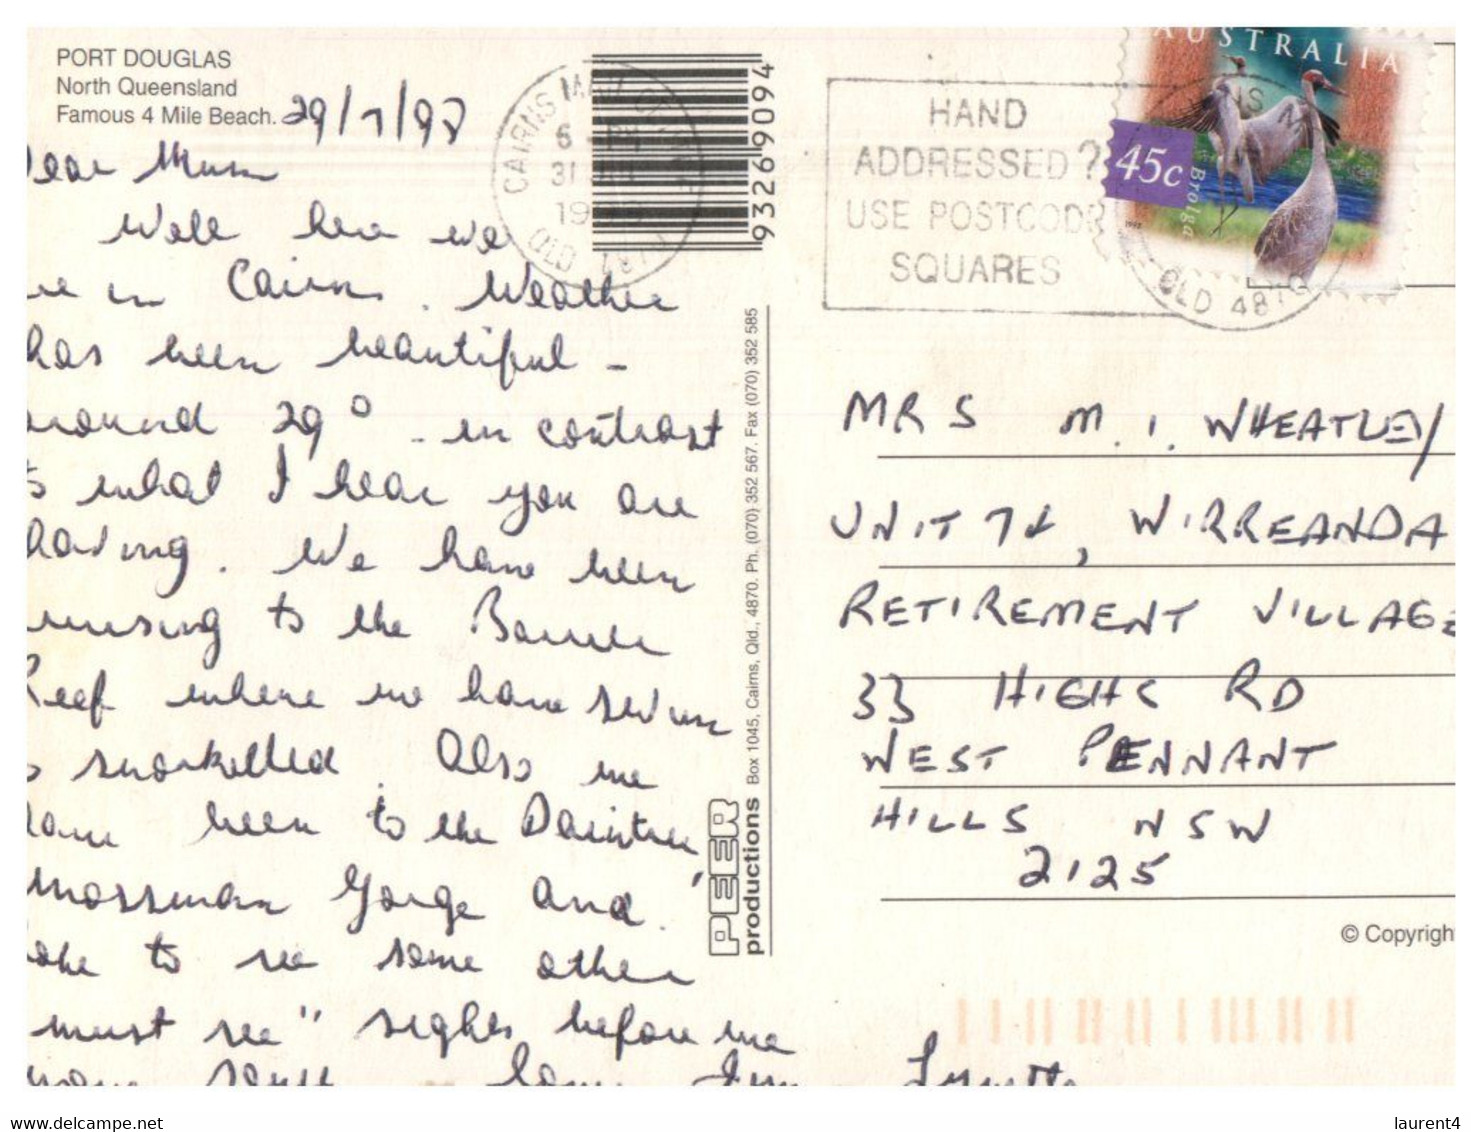 PORT DOUGLAS
North Queensland
Famous 4 Mile Beach.
29/7/98
Dear Mum
Well here we
are in Cairns. Weather
has been beautiful -
around 29° - in contrast
to what I hear you are
having. We have been
cruising to the Barrier
Reef where we have swum
& snorkelled. Also we
have been to the Daintree,
Mossman Gorge and
hope to see some other
"must see" sights before we
Lynette
CAIRNS MAIL CENTRE
6 - PM
31 JUL
1998
QLD
9326909 4
PEER
productions
Box 1045, Cairns, Qld., 4870. Ph. (070) 352 567. Fax (070) 352 585
HAND
ADDRESSED?
USE POSTCODE
SQUARES
AUSTRALIA
45c
Brolga
QLD 4870
MRS M. I. WHEATLEY
UNIT 74, WIRREANDA
RETIREMENT VILLAGE
33 HIGHS RD
WEST PENNANT
HILLS NSW
2125
© Copyrigh
delcampe.net
laurent4